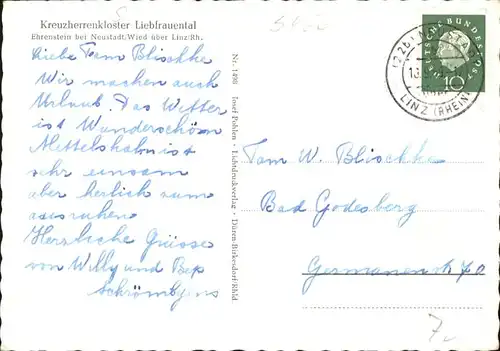 Kreuzherrenkloster Liebfrauental
Ehrenstein bei Neustadt/Wied über Linz/Rh.
Liebe Fam Blischke
Wir machen auch
Urlaub. Das Wetter
ist Wunderschön
Mittelshahn ist
sehr einsam
aber herlich zum
ausruhen
Herzliche Grüsse
von Willy und Bep
Nr. 1406 Josef Pohlen - Lichtdruckverlag - Düren-Birkesdorf/Rhld
DEUTSCHE BUNDESPOST
10
LINZ (RHEIN)
Fam W. Blischke
Bad Godesberg
Germanenstr 70